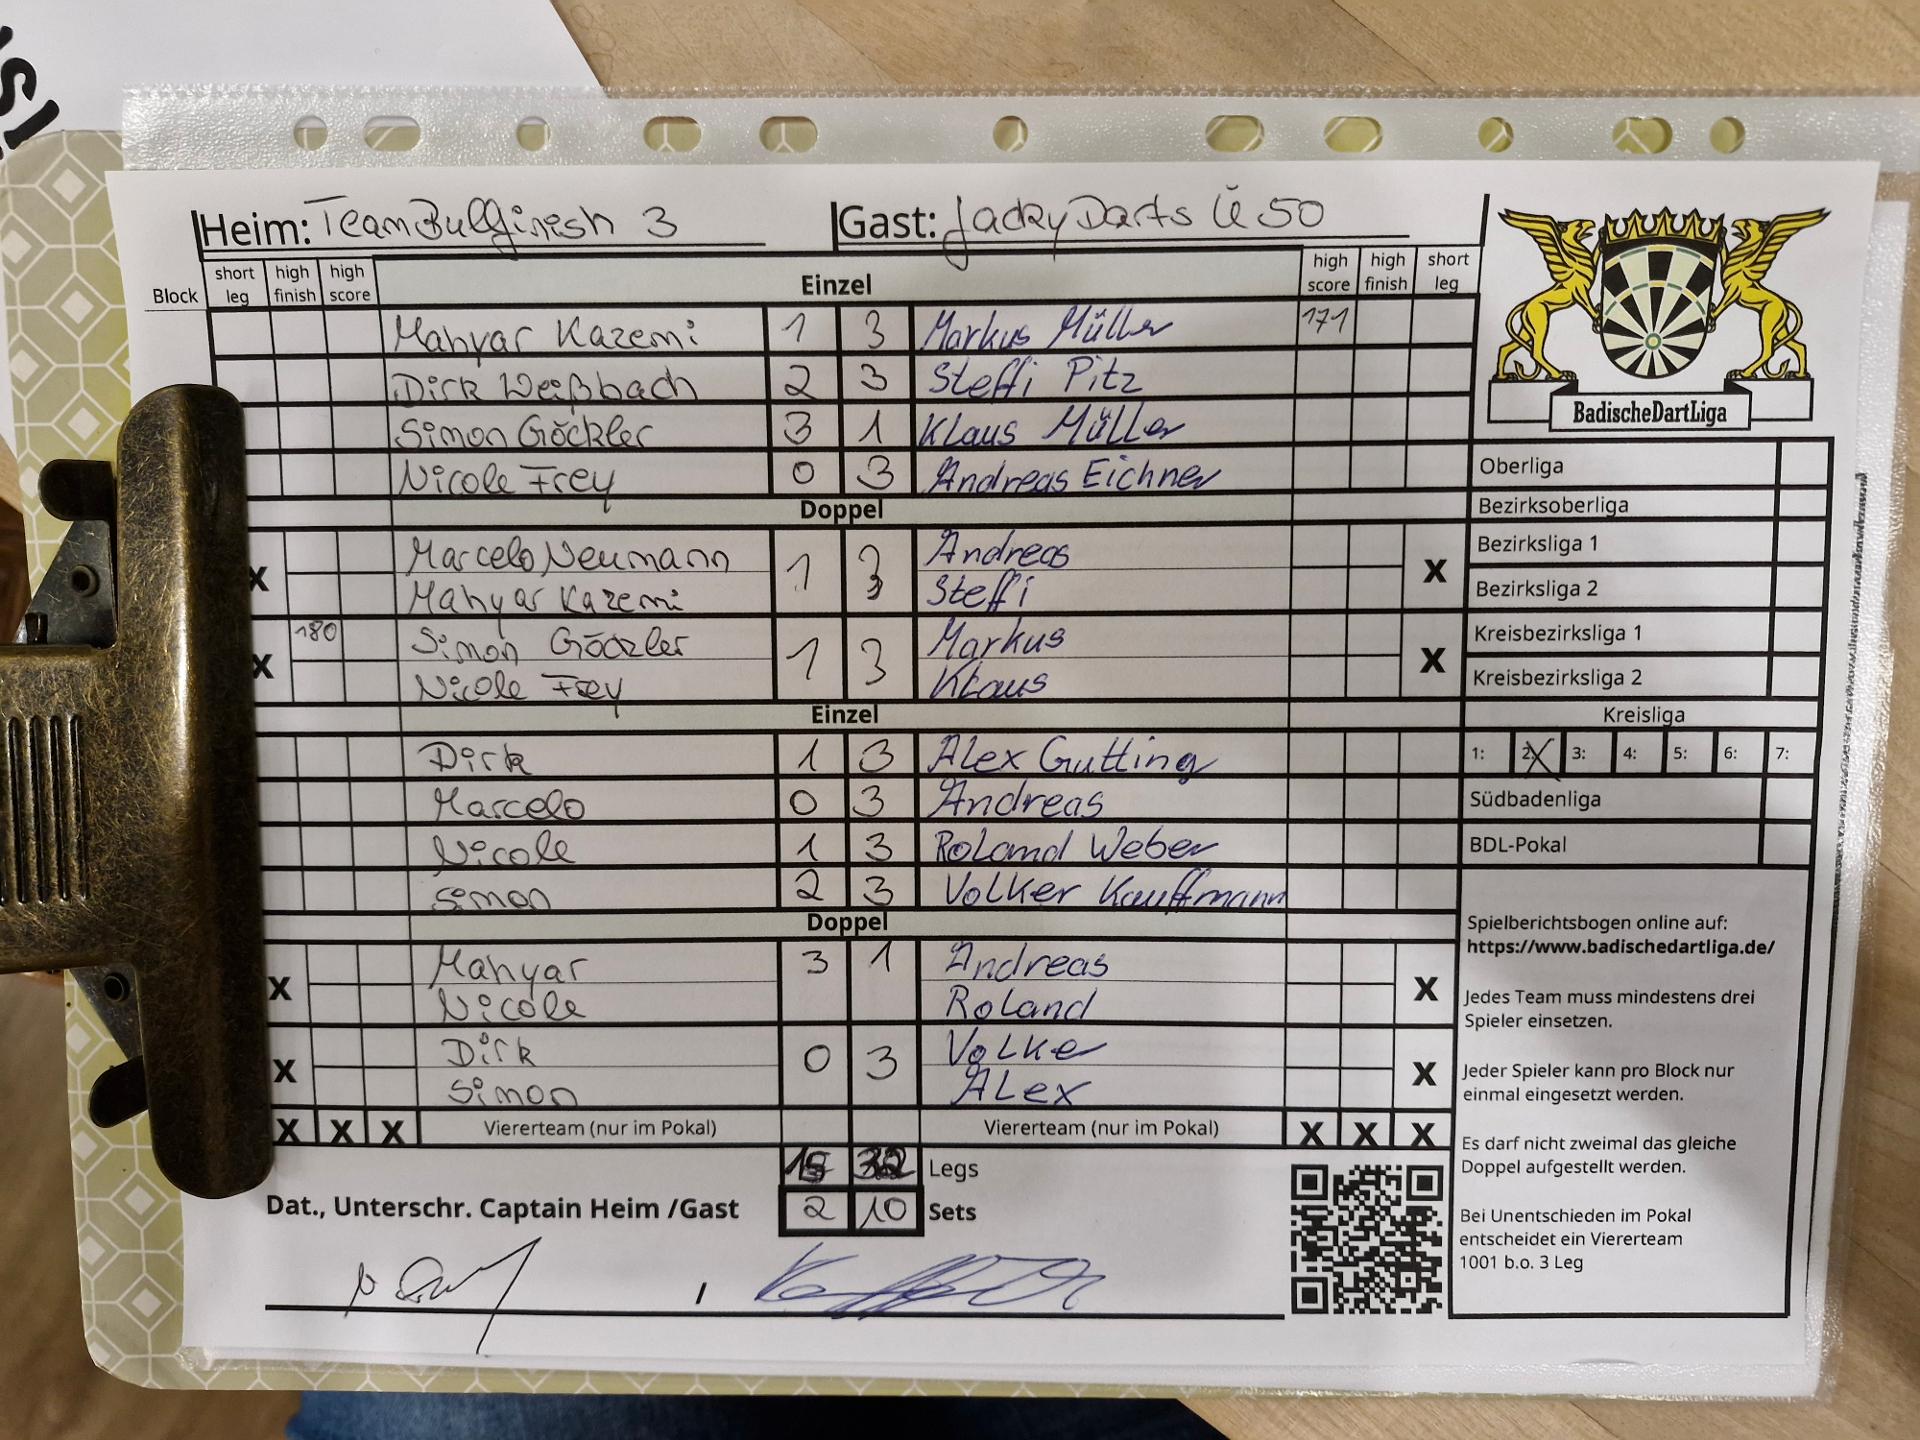 Heim: TeamBullfinish 3 Gast: JackyDarts Ü 50
Block short leg high finish high score Einzel high score high finish short leg
Mahyar Kazemi 1 3 Markus Müller 171
Dirk Weißbach 2 3 Steffi Pitz
Simon Göckler 3 1 Klaus Müller
Nicole Frey 0 3 Andreas Eichner
Doppel
Marcelo Neumann 1 3 Andreas
X Mahyar Kazemi Steffi X
180 Simon Göckler 1 3 Markus
X Nicole Frey Klaus X
Einzel
Dirk 1 3 Alex Gutting
Marcelo 0 3 Andreas
Nicole 1 3 Roland Weber
Simon 2 3 Volker Kauffmann
Doppel
Mahyar 3 1 Andreas
X Nicole Roland X
Dirk 0 3 Volke
X Simon Alex X
X X X Viererteam (nur im Pokal) Viererteam (nur im Pokal) X X X
Legs
Dat., Unterschr. Captain Heim /Gast 2 10 Sets
,
BadischeDartLiga
Oberliga
Bezirksoberliga
Bezirksliga 1
Bezirksliga 2
Kreisbezirksliga 1
Kreisbezirksliga 2
Kreisliga
1: 2 X 3: 4: 5: 6: 7:
Südbadenliga
BDL-Pokal
Spielberichtsbogen online auf:
https://www.badischedartliga.de/
Jedes Team muss mindestens drei
Spieler einsetzen.
Jeder Spieler kann pro Block nur
einmal eingesetzt werden.
Es darf nicht zweimal das gleiche
Doppel aufgestellt werden.
Bei Unentschieden im Pokal
entscheidet ein Viererteam
1001 b.o. 3 Leg